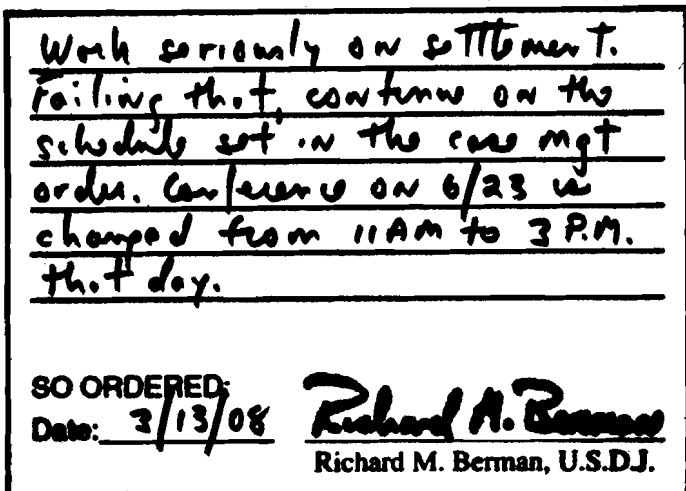 Work seriously on settlement.
Failing that, continue on the
schedule set in the case mgt
order. Conference on 6/23 is
changed from 11AM to 3 P.M.
that day.
SO ORDERED:
Date: 3/13/08
Richard M. Berman
Richard M. Berman, U.S.D.J.